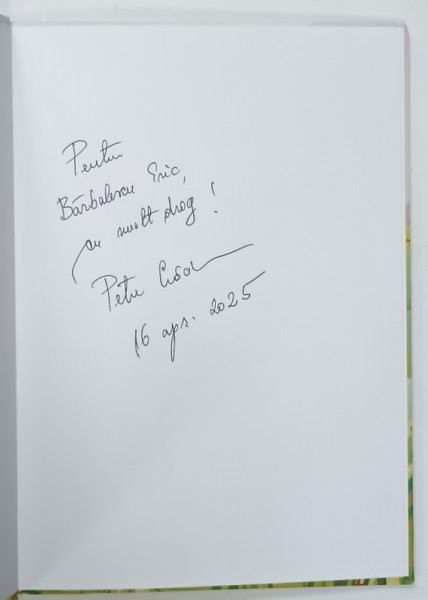 Pentru
Bărbulescu Eric,
cu mult drag!
Petru
16 apr. 2025